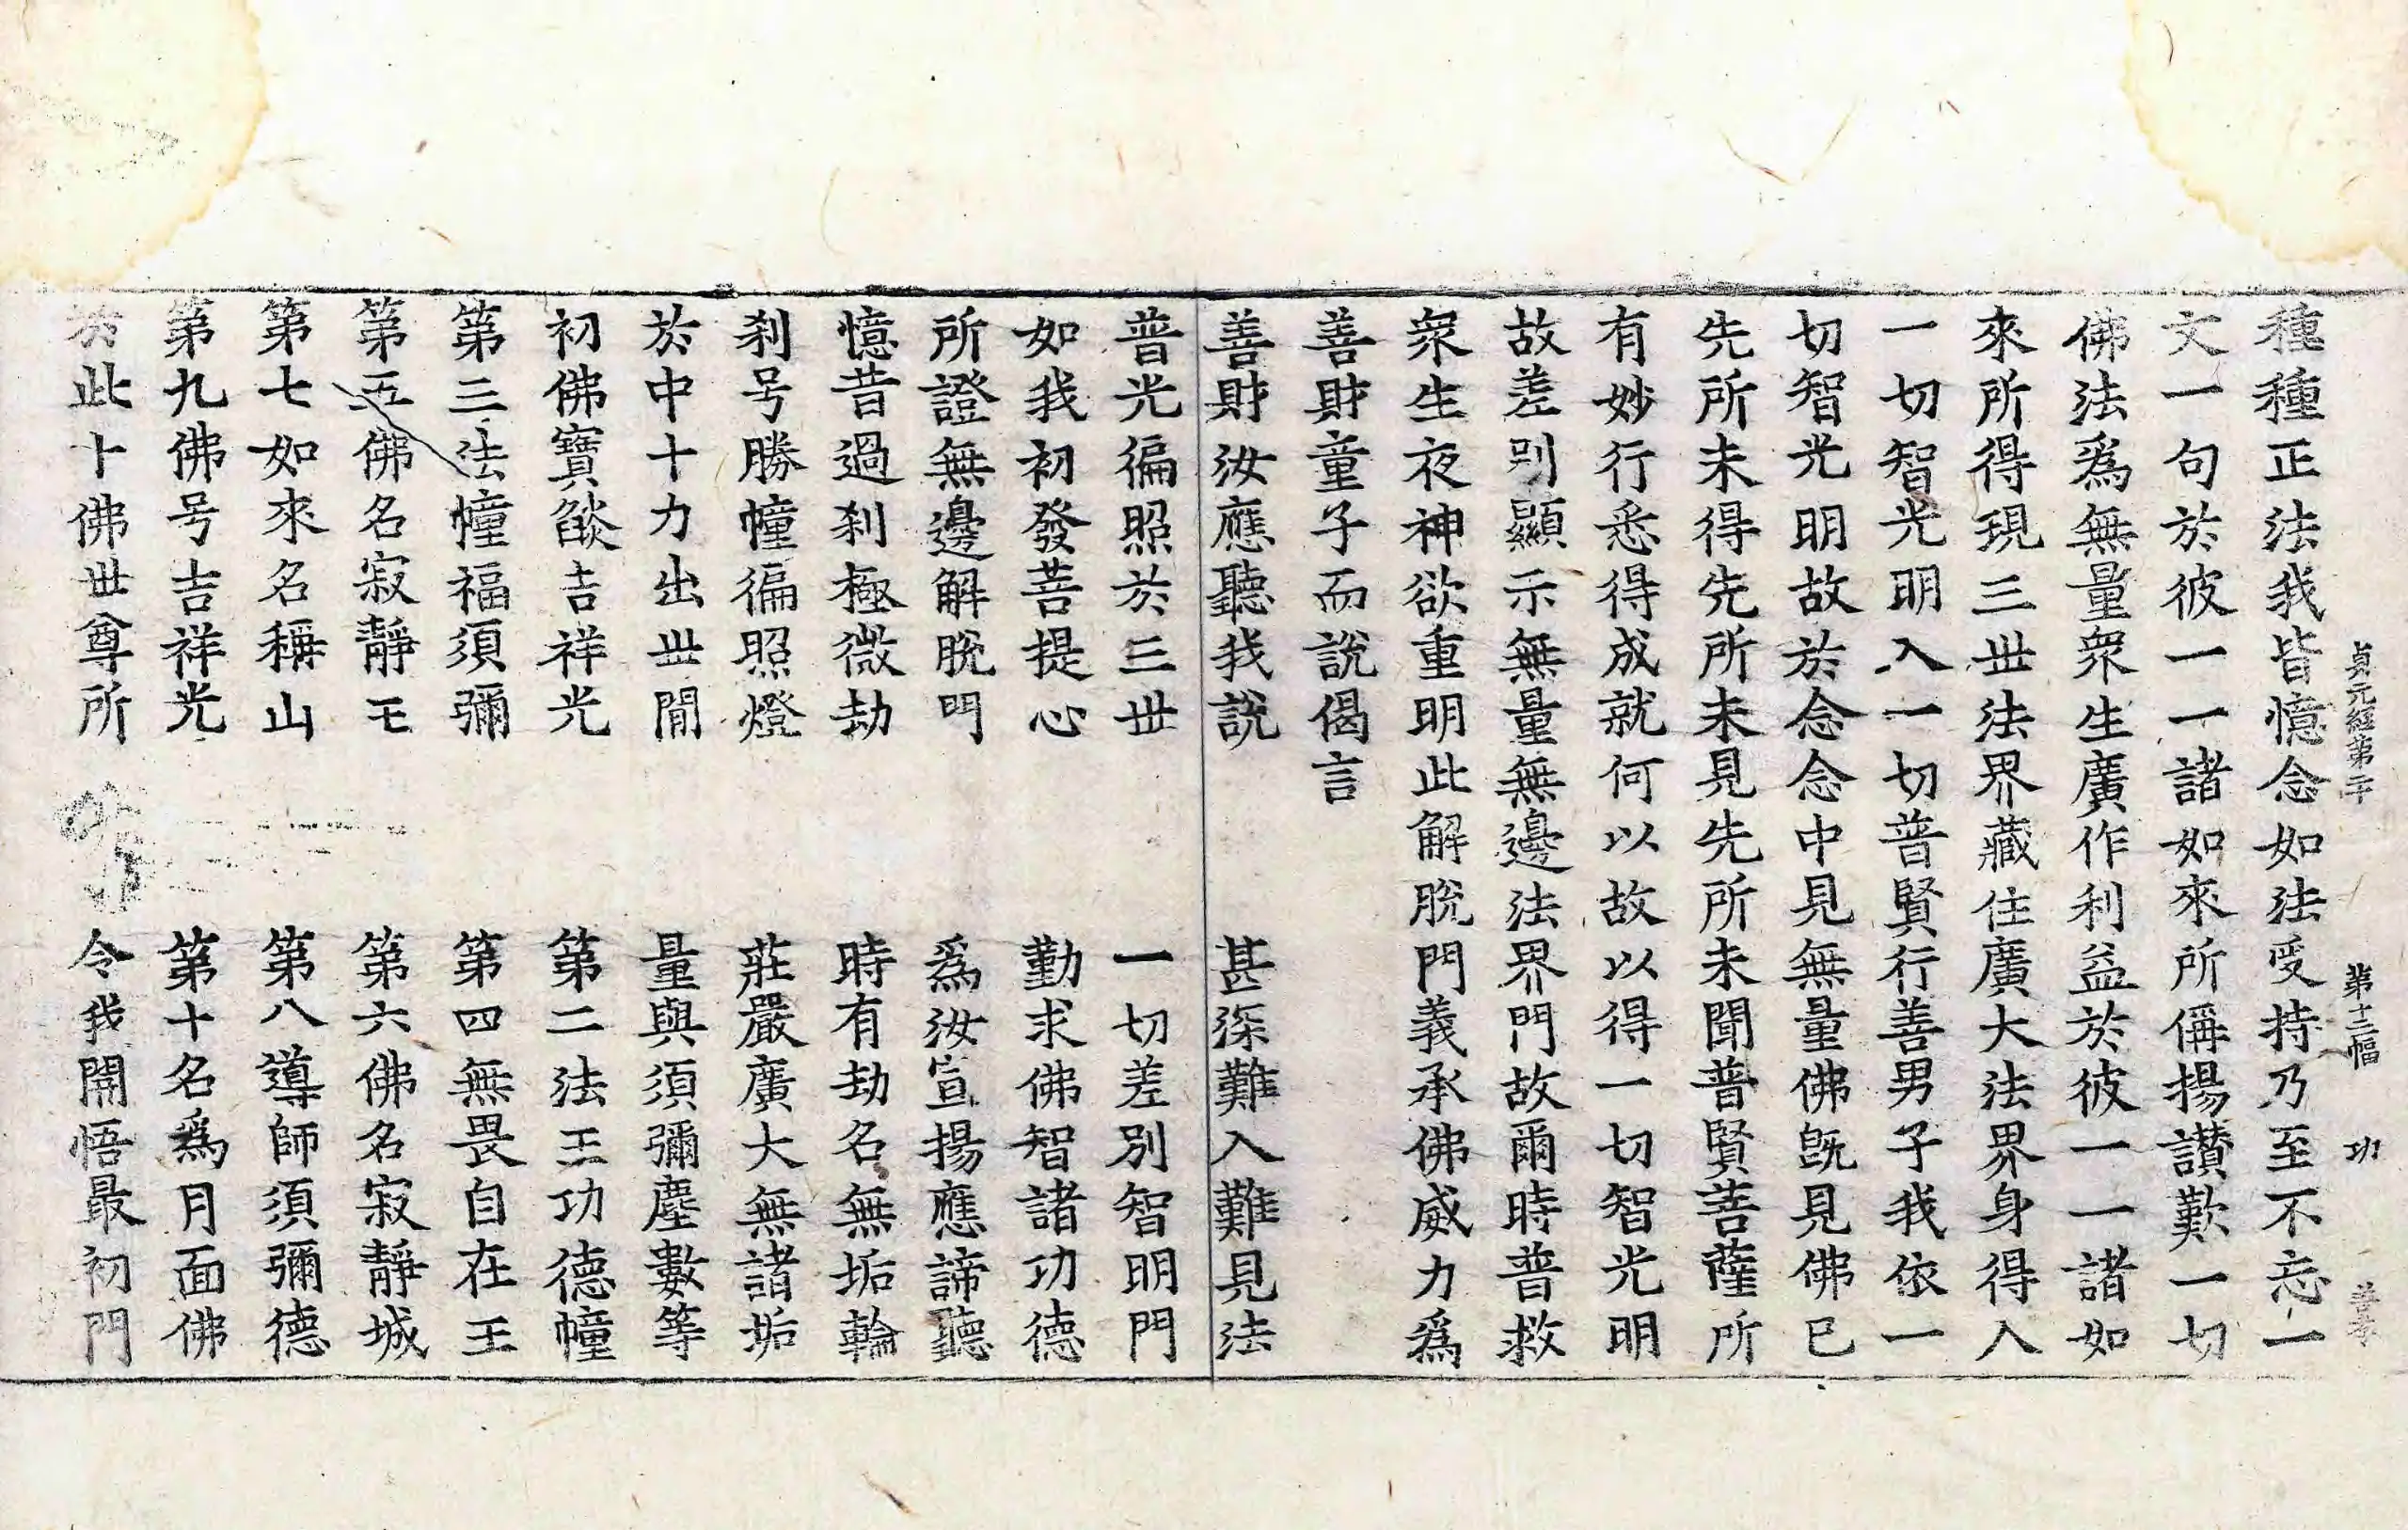 貞元經第二十 第十二幅 功
種種正法我皆憶念如法受持乃至不忘一
文一句於彼一一諸如來所偁揚讃歎一切
佛法爲無量衆生廣作利益於彼一一諸如
來所得現三世法界藏住廣大法界身得入
一切智光明入一切普賢行善男子我依一
切智光明故於念念中見無量佛旣見佛已
先所未得先所未見先所未聞普賢菩薩所
有妙行悉得成就何以故以得一切智光明
故差別顯示無量無邊法界門故爾時普救
衆生夜神欲重明此解脫門義承佛威力爲
善財童子而說偈言
善財汝應聽我說 甚深難入難見法
普光徧照於三世 一切差別智明門
如我初發菩提心 勤求佛智諸功德
所證無邊解脫門 爲汝宣揚應諦聽
憶昔過刹極微劫 時有劫名無垢輪
刹号勝幢徧照燈 莊嚴廣大無諸垢
於中十力出世閒 量與須彌塵數等
初佛寶燄吉祥光 第二法王功德幢
第三法幢福須彌 第四無畏自在王
第五佛名寂靜王 第六佛名寂靜城
第七如來名稱山 第八導師須彌德
第九佛号吉祥光 第十名爲月面佛
於此十佛世尊所 令我開悟最初門